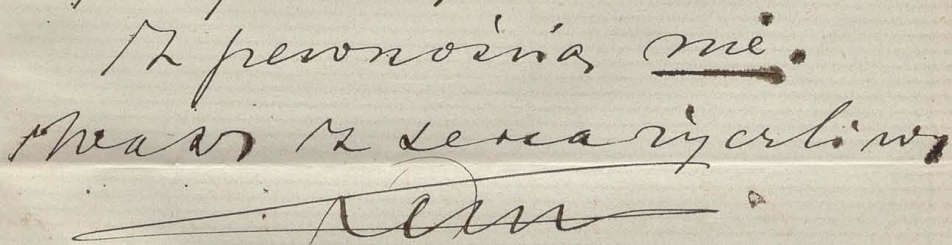 z pewnością nie.
z serca życzliwy